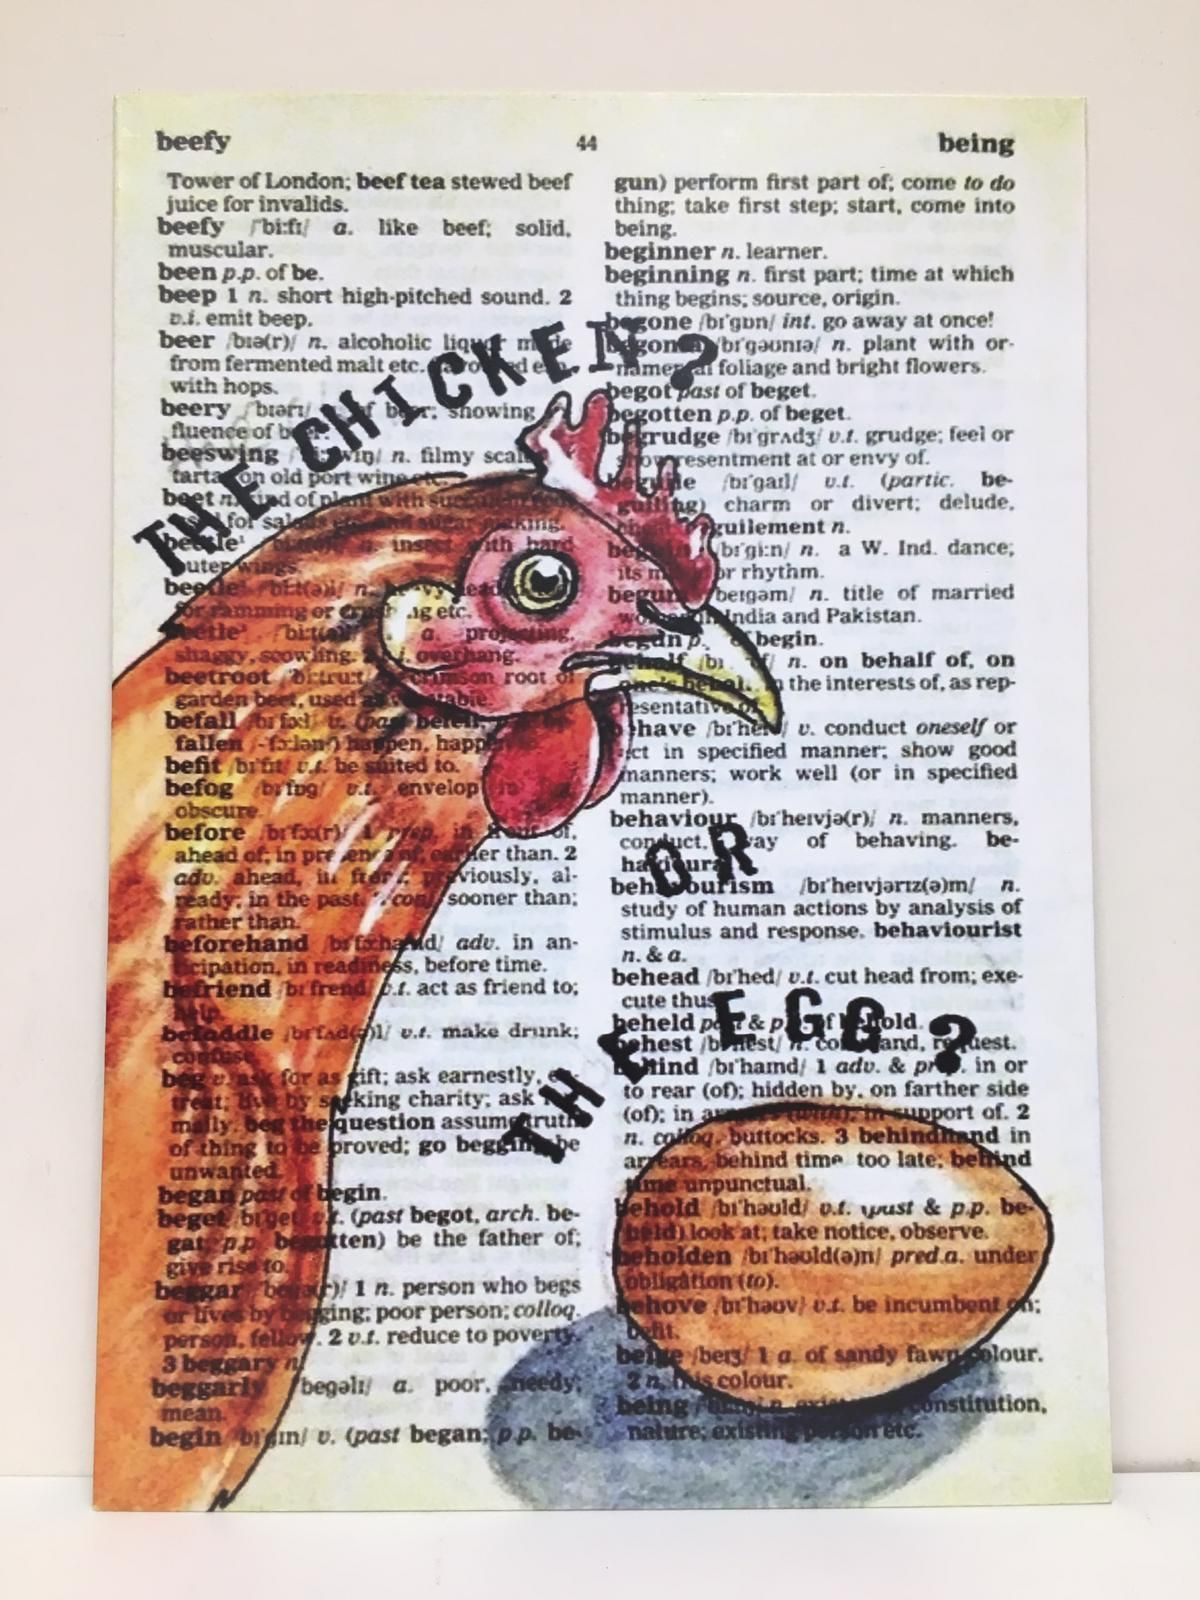 beefy 44 being
Tower of London; beef tea stewed beef
juice for invalids.
beefy /ˈbi:fɪ/ a. like beef; solid,
muscular.
been p.p. of be.
beep 1 n. short high-pitched sound. 2
v.i. emit beep.
beer /bɪə(r)/ n. alcoholic liquor made
from fermented malt etc. flavoured esp.
with hops.
beery /ˈbɪərɪ/ of beer; showing
fluence of beer.
beeswing n. filmy scale
tartar on old port wine etc.
beet n. kind of plant with succulent root
used for salads etc. and sugar-making.
beetle¹ n. insect with hard
outer wings.
beetle² /ˈbi:t(ə)l/ n. heavy-headed tool
for ramming or crushing etc.
beetle³ a. projecting,
shaggy, scowling. 2 v.i. overhang.
beetroot /ˈbi:tru:t/ crimson root of
garden beet, used as vegetable.
befall /bɪˈfɔ:l/ v. (past befell, p.p. be-
fallen /-ˈfɔ:lən/) happen, happen to.
befit /bɪˈfɪt/ v.t. be suited to.
befog /bɪˈfɒg/ v.t. envelop in fog;
obscure.
before /bɪˈfɔ:(r)/ 1 prep. in front of,
ahead of; in presence of; earlier than. 2
adv. ahead, in front; previously, al-
ready; in the past. 3 conj. sooner than;
rather than.
beforehand /bɪˈfɔ:hænd/ adv. in an-
ticipation, in readiness, before time.
befriend /bɪˈfrend/ v.t. act as friend to;
help.
befuddle /bɪˈfʌd(ə)l/ v.t. make drunk;
confuse.
beg v. ask for as gift; ask earnestly, en-
treat; live by seeking charity; ask
mally. beg the question assume truth
of thing to be proved; go begging be
unwanted.
began past of begin.
beget /bɪˈget/ v.t. (past begot, arch. be-
gat; p.p. begotten) be the father of;
give rise to.
beggar /ˈbegə(r)/ 1 n. person who begs
or lives by begging; poor person; colloq.
person, fellow. 2 v.t. reduce to poverty.
3 beggary n.
beggarly /ˈbegəlɪ/ a. poor, needy;
mean.
begin /bɪˈgɪn/ v. (past began; p.p. be-
gun) perform first part of; come to do
thing; take first step; start, come into
being.
beginner n. learner.
beginning n. first part; time at which
thing begins; source, origin.
begone /bɪˈgɒn/ int. go away at once!
begonia /bɪˈgəʊnɪə/ n. plant with or-
namental foliage and bright flowers.
begot past of beget.
begotten p.p. of beget.
begrudge /bɪˈgrʌdʒ/ v.t. grudge; feel or
show resentment at or envy of.
beguile /bɪˈgaɪl/ v.t. (partic. be-
guiling) charm or divert; delude,
beguilement n.
beguine /bɪˈgi:n/ n. a W. Ind. dance;
its music or rhythm.
begum /ˈbeɪgəm/ n. title of married
woman in India and Pakistan.
begun p.p. of begin.
behalf n. on behalf of, on
one's behalf in the interests of, as rep-
resentative of.
behave /bɪˈheɪv/ v. conduct oneself or
act in specified manner; show good
manners; work well (or in specified
manner).
behaviour /bɪˈheɪvjə(r)/ n. manners,
conduct, way of behaving. be-
havioural
behaviourism /bɪˈheɪvjərɪz(ə)m/ n.
study of human actions by analysis of
stimulus and response. behaviourist
n. & a.
behead /bɪˈhed/ v.t. cut head from; exe-
cute thus.
beheld past & p.p. of behold.
behest /bɪˈhest/ n. command, request.
behind /bɪˈhaɪnd/ 1 adv. & prep. in or
to rear (of); hidden by, on farther side
(of); in arrears (with); in support of. 2
n. colloq. buttocks. 3 behindhand in
arrears, behind time, too late; behind
time unpunctual.
behold /bɪˈhəʊld/ v.t. (past & p.p. be-
held) look at; take notice, observe.
beholden /bɪˈhəʊld(ə)n/ pred.a. under
obligation (to).
behove /bɪˈhəʊv/ v.t. be incumbent on;
befit.
beige /beɪʒ/ 1 a. of sandy fawn colour.
2 n. this colour.
being n. existence; constitution,
nature; existing person etc.
THE CHICKEN?
OR
THE EGG?